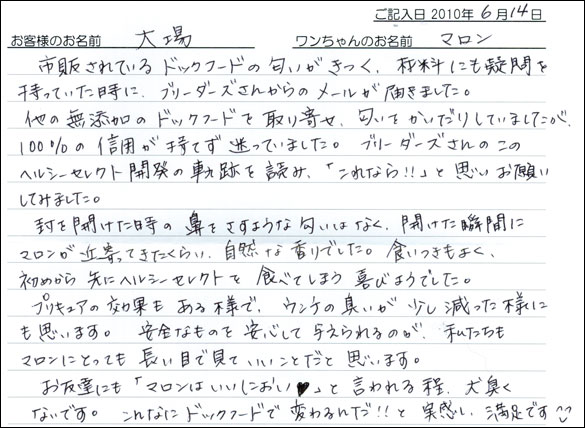 ご記入日 2010年 6月 14日
お客様のお名前 大場 ワンちゃんのお名前 マロン
市販されているドックフードの匂いがきつく、材料にも疑問を
持っていた時に、ブリーダーズさんからのメールが届きました。
他の無添加のドックフードを取り寄せ、匂いをかいだりしていましたが、
100%の信用が持てず迷っていました。ブリーダーズさんのこの
ヘルシーセレクト開発の軌跡を読み、「これなら!!」と思いお願い
してみました。
封を開けた時の鼻をさすような匂いはなく、開けた瞬間に
マロンが近寄ってきたくらい、自然な香りでした。食いつきもよく、
初めから先にヘルシーセレクトを食べてしまう喜びようでした。
プリキュアの効果もある様で、ウンチの臭いが少し減った様に
も思います。安全なものを安心して与えられるのが、私たちも
マロンにとっても長い目で見ていいことだと思います。
お友達にも「マロンはいいにおい♥」と言われる程、犬臭く
ないです。こんなにドックフードで変わるんだ!!と実感し、満足です